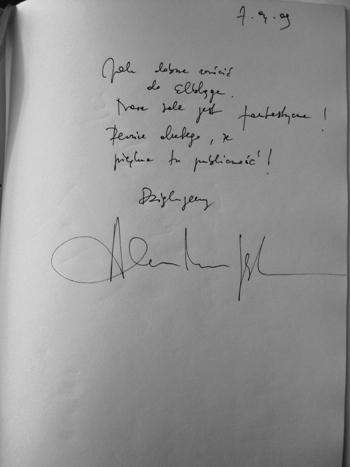 7.9.09
Jak dobrze wrócić
do Elbląga.
Nowa sala jest fantastyczna!
Pewnie dlatego, że
piękna tu publiczność!
Dziękujemy